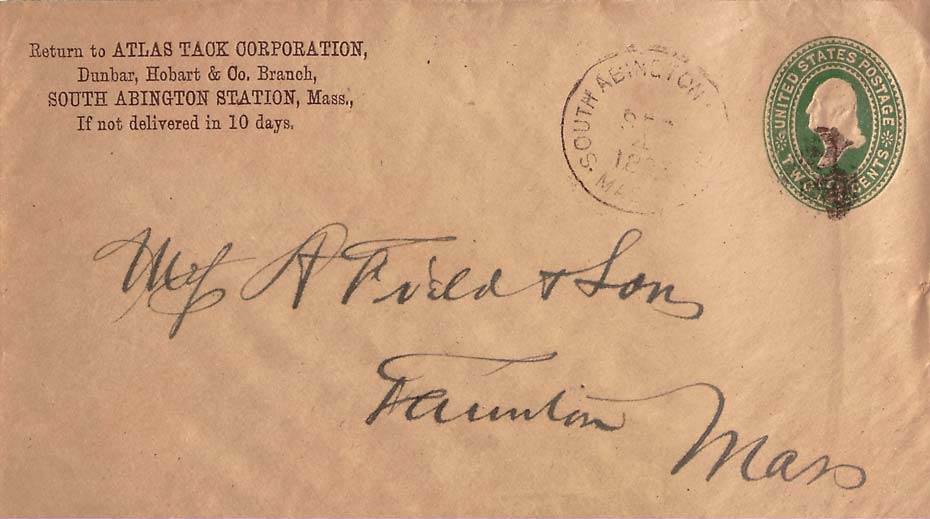 Return to ATLAS TACK CORPORATION,
Dunbar, Hobart & Co. Branch,
SOUTH ABINGTON STATION, Mass.,
If not delivered in 10 days.
SOUTH ABINGTON
UNITED STATES POSTAGE
TWO CENTS
A Field & Son
Taunton
Mass